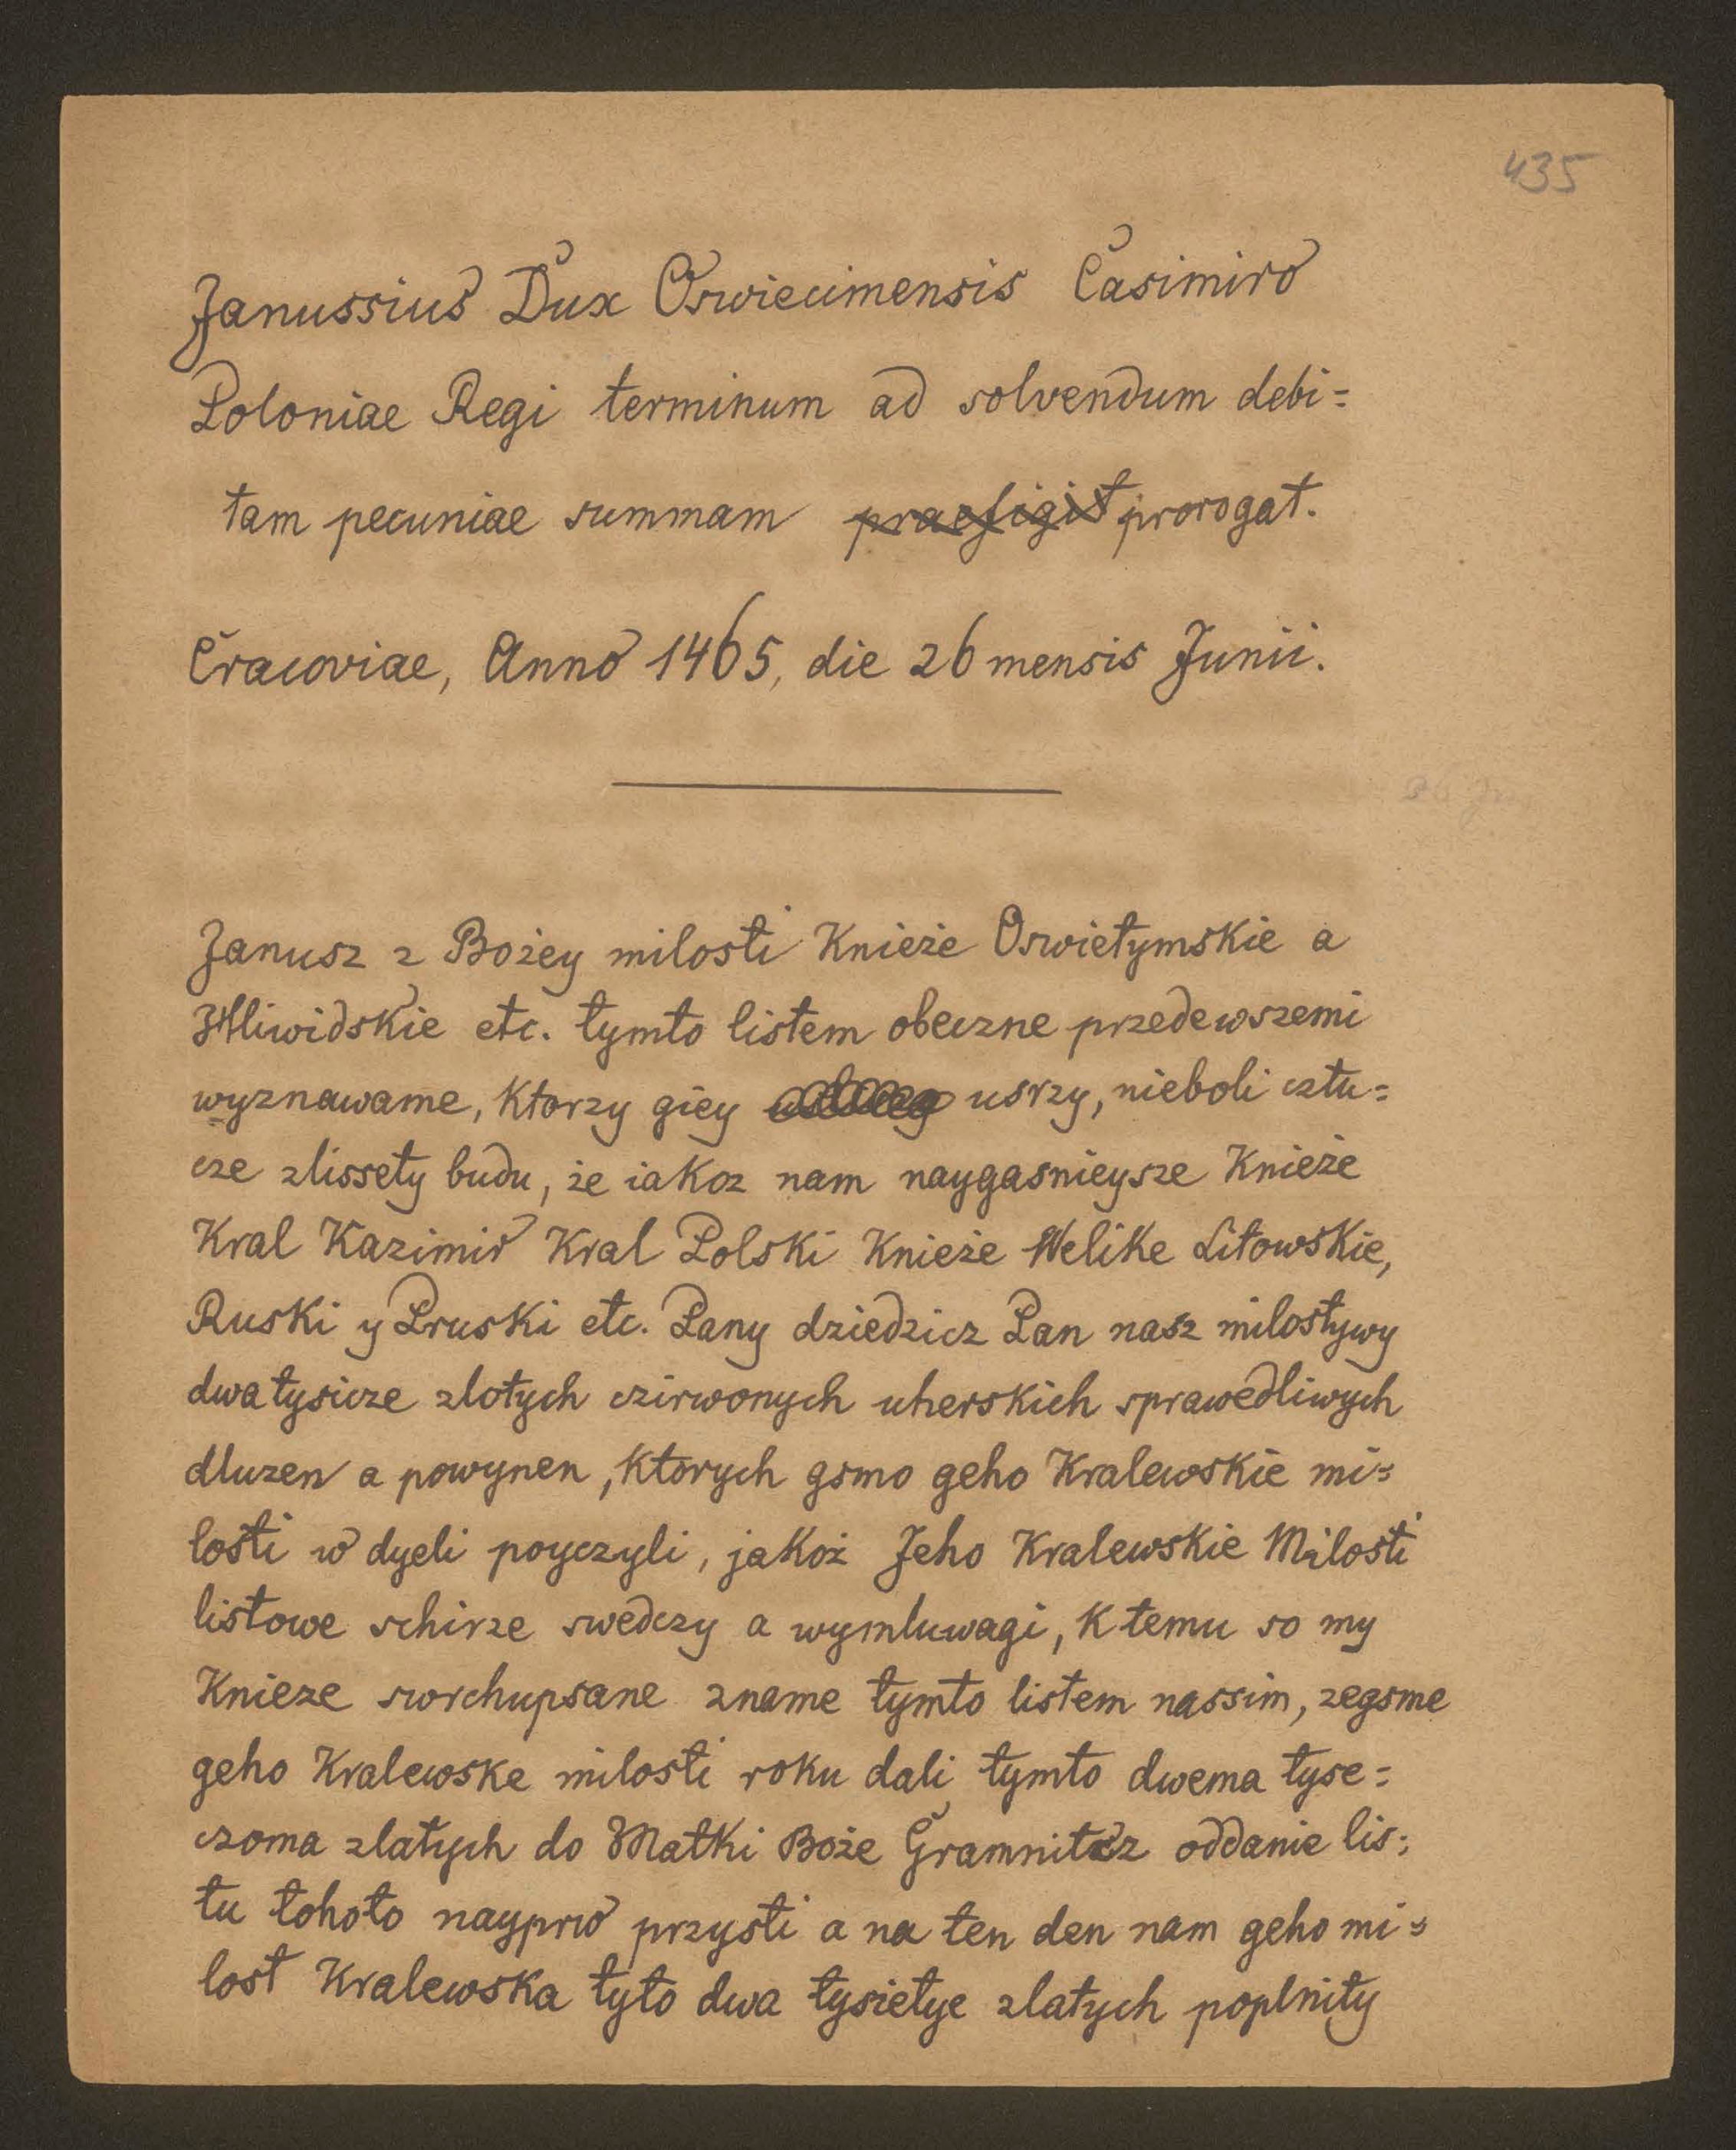 435
Janussius Dux Oswiecimensis Casimiro
Poloniae Regi terminum ad solvendum debi=
tam pecuniae summam praefigit prorogat.
Cracoviae, Anno 1465, die 26 mensis Junii.
Janusz z Bożey milosti Knieże Oswietymskie a
Hliwidskie etc. tymto listem obeczne przedewszemi
wyznawame, Ktorzy giey usrzy, nieboli cztu=
cze zlissety budu, że iakoz nam naygasnieysze Knieże
Kral Kazimir Kral Polski Knieże Welike Litowskie,
Ruski y Pruski etc. Pany dziedzicz Pan nasz milostywy
dwa tysicze zlotych czirwonych uherskich sprawedliwych
dluzen a powynen, Ktorych gsmo geho Kralewskie mi=
losti w dyeli poyczyli, jakoż Jeho Kralewskie Milosti
listowe schirze swedczy a wymluwagi, K temu so my
Knieze sworchupsane zname tymto listem nassim, zegsme
geho Kralewske milosti roku dali tymto dwema tyse=
czoma zlatych do Matki Boże Gramnitcz oddanie lis=
tu tohoto nayprw przysti a na ten den nam geho mi=
lost Kralewska tyto dwa tysietye zlatych poplnity